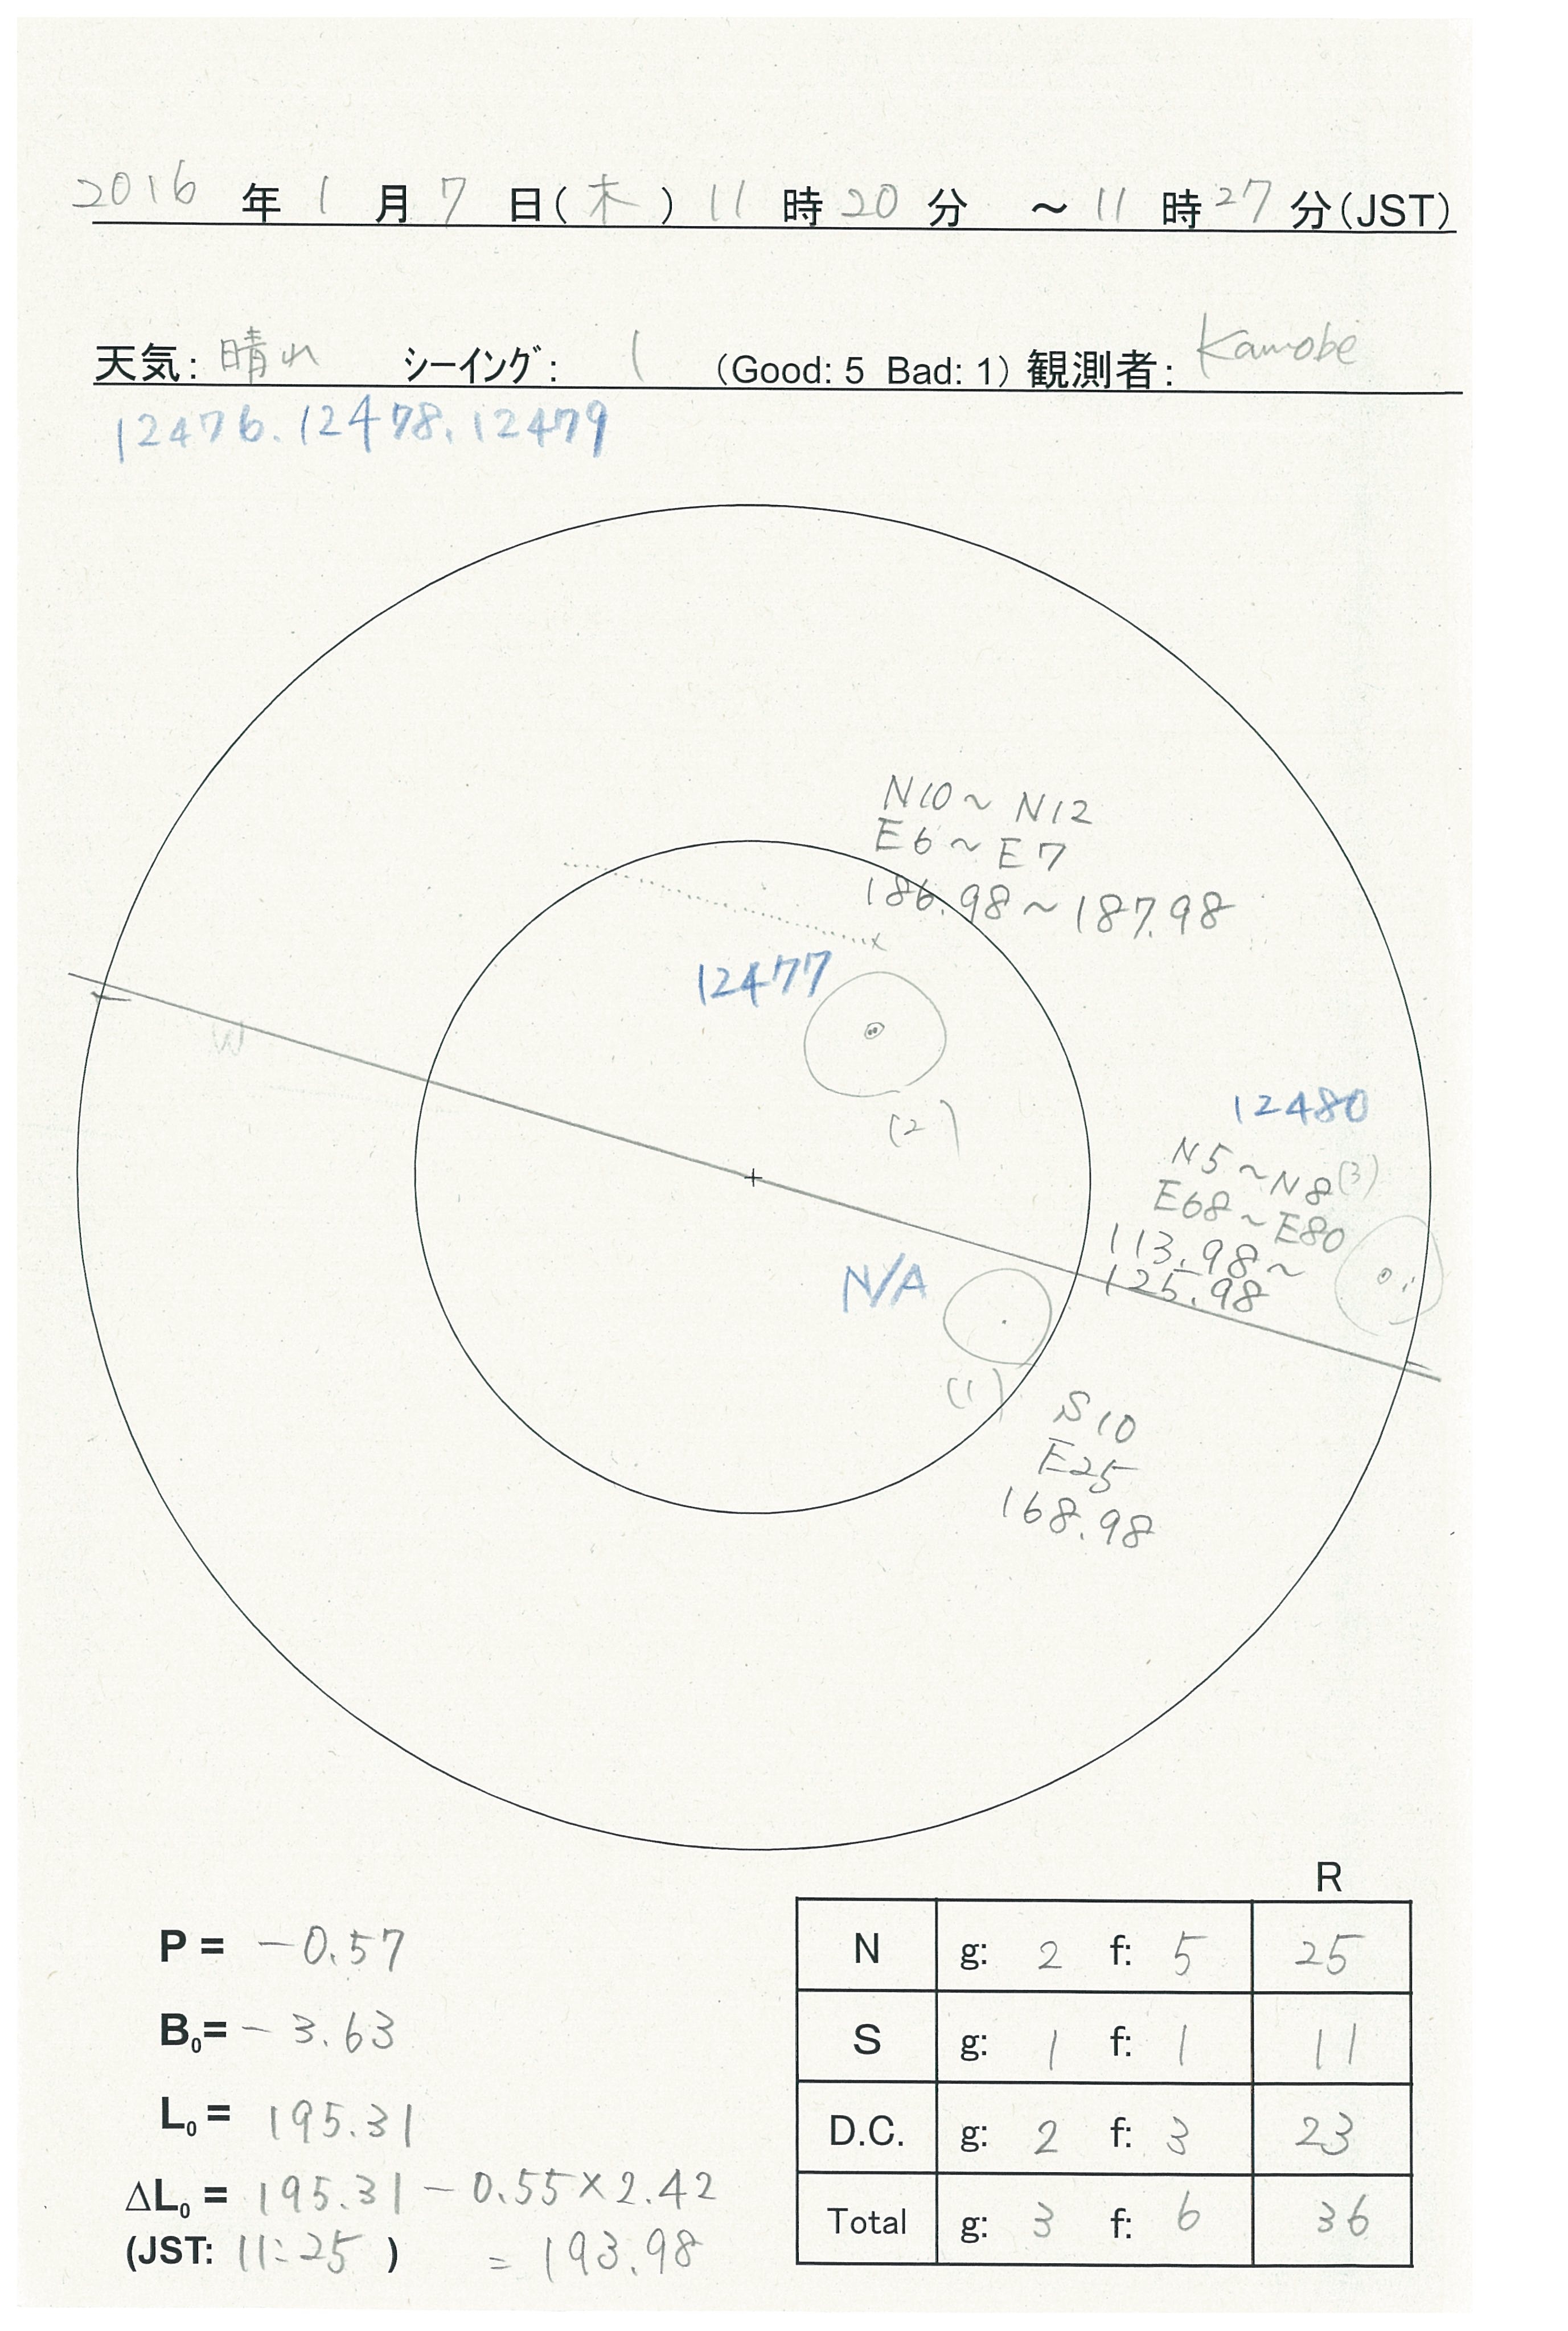 2016 年 1 月 7 日(木) 11 時 20 分 ～ 11 時 27 分(JST)
天気: 晴れ シーイング: 1 (Good: 5 Bad: 1) 観測者: Kamobe
12476. 12478. 12479
N10～N12
E6～E7
186.98～187.98
12477
(2)
W
12480
N5～N8 (3)
E68～E80
113.98～
125.98
N/A
(1)
S10
E25
168.98
R
P = -0.57
B0= -3.63
L0= 195.31
ΔL0 = 195.31 - 0.55×2.42
(JST: 11:25 ) = 193.98
N g: 2 f: 5 25
S g: 1 f: 1 11
D.C. g: 2 f: 3 23
Total g: 3 f: 6 36